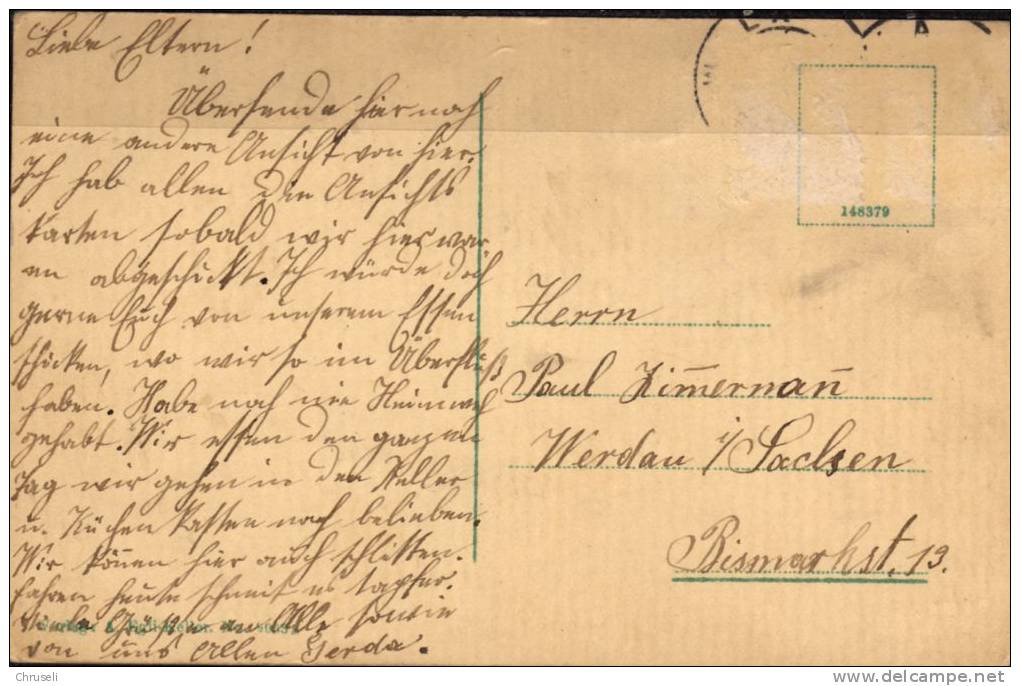 Liebe Eltern!
Übersende hier noch
eine andere Ansicht von hier.
Ich hab allen die Ansichts
karten sobald wir hier war
en abgeschickt. Ich würde doch
gerne Euch von unserem Essen
schicken, wo wir so im Überfluß
haben. Habe noch nie Heimweh
gehabt. Wir essen den ganzen
Tag wir gehen in den Keller
u. Küchen Kassen nach belieben.
Wir können hier auch schlitten.
fahren heute schneit es tapfer.
Viele Grüsse an Alle sowie
von uns Allen Gerda.
148379
Herrn
Paul Zim̅erman̅
Werdau i/Sachsen
Bismarkst. 13.
Chruseli
delcampe.net